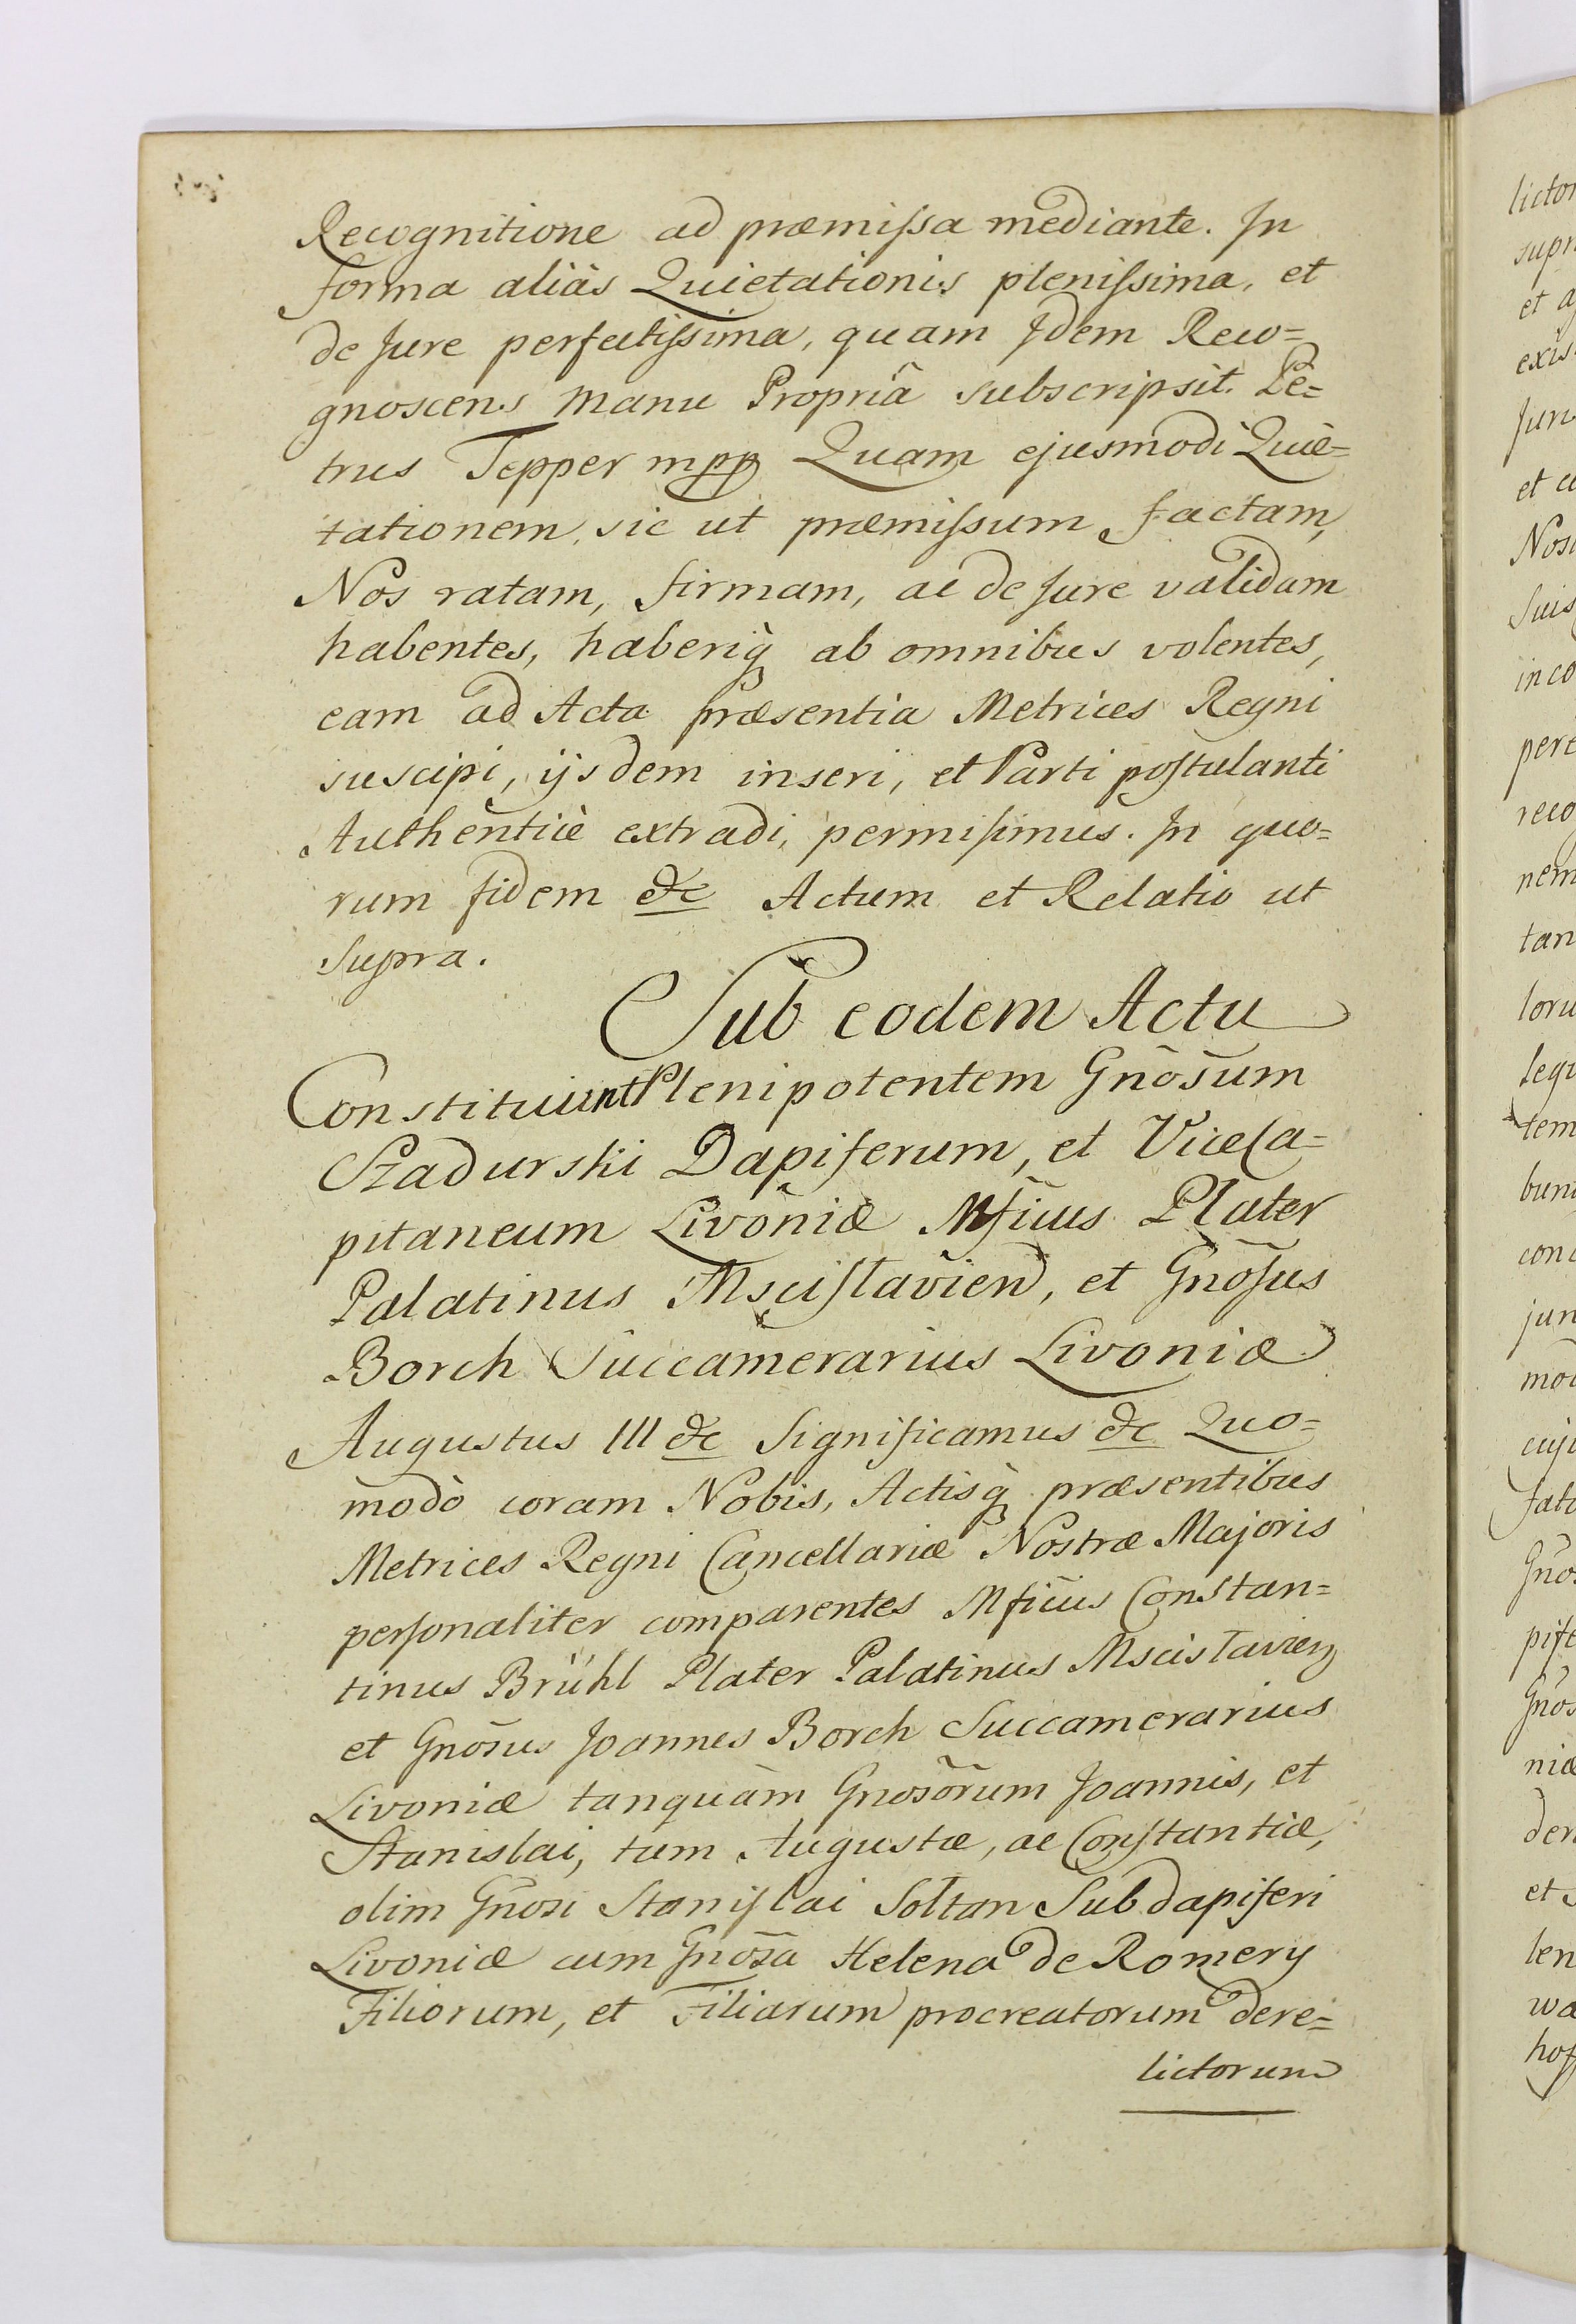 Recognitione ad præmiſsa mediante. In
forma aliàs Quietationis pleniſsima, et
de Jure perfectiſsima, quam Idem Reco=
gnoscens Manu Propriâ subscripsit. Pe=
trus Tepper mpp Quam ejusmodi Quie=
tationem, sic ut præmiſsum factam,
Nos ratam, firmam, ac de Jure validam
habentes, haberiq̀ ab omnibus volentes,
eam ad Acta præsentia Metrices Regni
suscipi, ijsdem inseri, et Parti poſtulanti
Authenticè extradi, permiſimus. In quo=
rum fidem &c Actum et Relatio ut
Supra.
Sub eodem Actu
Constituunt Plenipotentem Gñosum
Szadurski Dapiferum, et ViceCa=
pitaneum Livoniæ Mficus Plater
Palatinus Msciſlavien, et Gnõſus
Borch Succamerarius Livoniæ
Augustus III &c Significamus &c Quo=
modò coram Nobis, Actisq̀ præsentibus
Metrices Regni Cancellariæ Nostræ Majoris
perſonaliter comparentes Mficus Constan=
tinus Brühl Plater Palatinus Mscislavien
et Gnõsus Joannes Borch Succamerarius
Livoniæ tanquàm Gnosõrum Joannis, et
Stanislai, tum Augustæ, ac Conſtantiæ,
olim Gñosi Staniſlai Soltan Subdapiferi
Livoniæ cum Gnõsa Helena de Romery
Filiorum, et Filiarum procreatorum dere=
lictorum